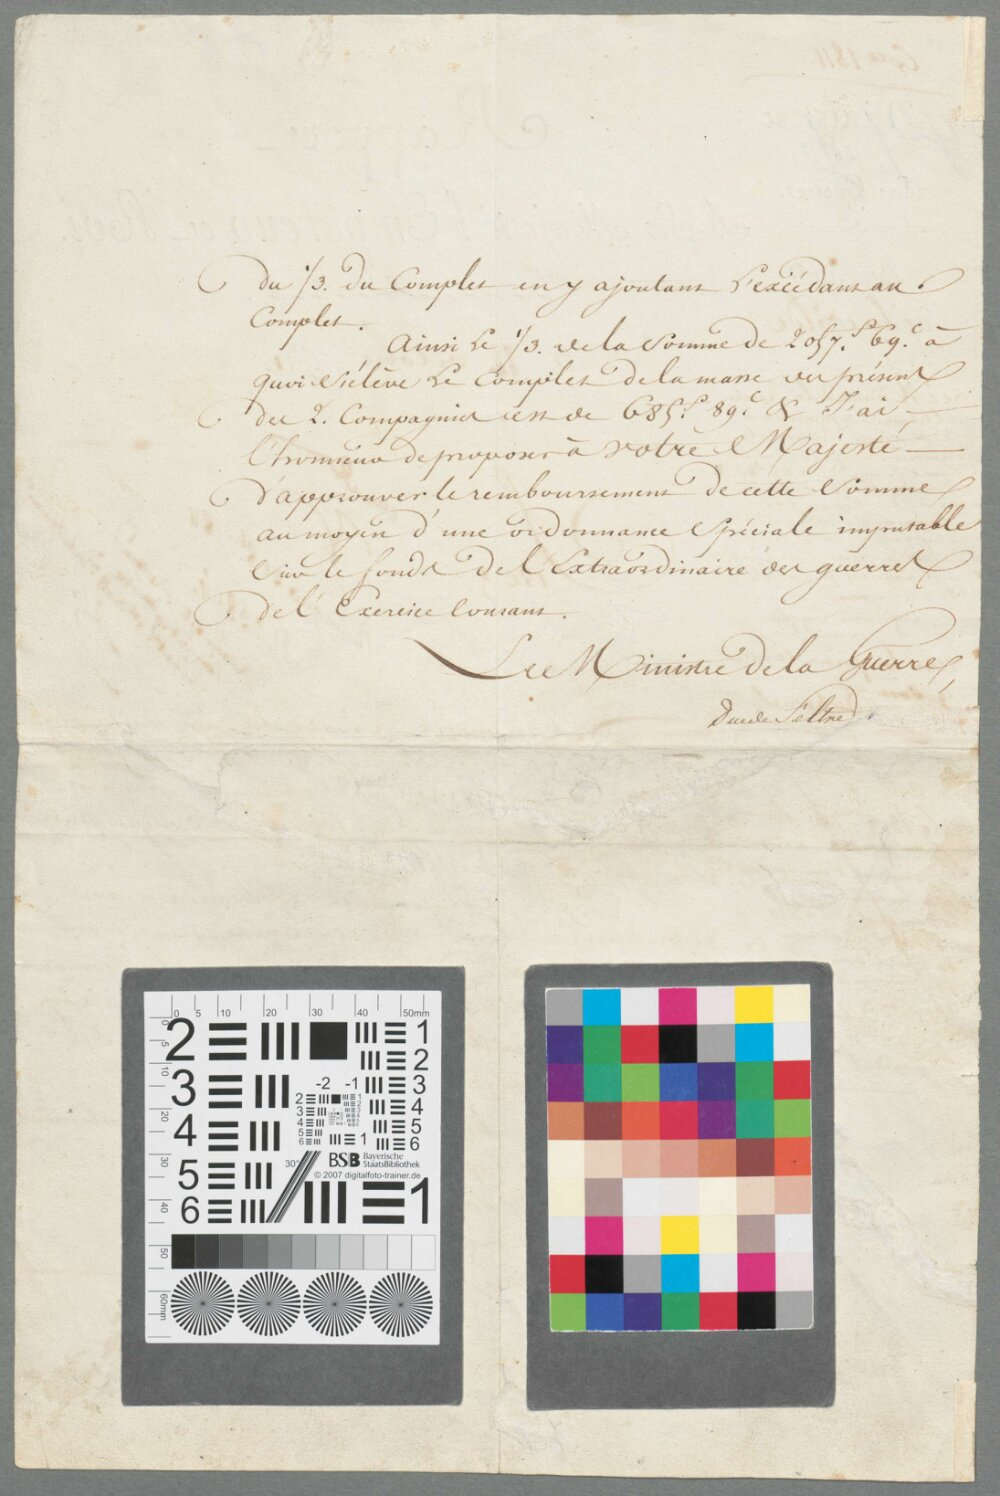 du 1/3. du Complet en y ajoutant l'excédant au
Complet.
Ainsi le 1/3. de la Somme de 2057.f 69.c à
quoi s'élève le Complet de la masse du présent
des 2. Compagnies est de 685.f 89.c & J'ai
l'honneur de proposer à Votre Majesté
d'approuver le remboursement de cette Somme
au moyen d'une ordonnance Spéciale imputable
Sur le fonds de l'Extraordinaire des guerres
de l'Exercice Courant.
Le Ministre de la Guerre,
Duc de Feltre
0 5 10 20 30 40 50mm
0 5 10 20 30 40 50 60mm
2 1
2
3 3
4 4
5 5
6 6
-2 -1
2 1
3 2
4 3
5 4
6 5
6
1
30°
BSB Bayerische
StaatsBibliothek
© 2007 digitalfoto-trainer.de
1